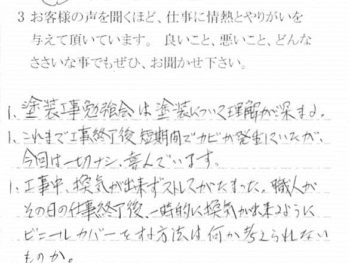 3 お客様の声を聞くほど、仕事に情熱とやりがいを
与えて頂いています。 良いこと、悪いこと、どんな
ささいな事でもぜひ、お聞かせ下さい。
1、塗装工事勉強会は塗装について理解が深まる。
1、これまで工事終了後 短期間でカビが発生していたが、
今回は一切ナシ、喜んでいます。
1、工事中、換気が出来ずストレスがたまった。職人が
その日の仕事終了後、一時的に換気が出来るように
ビニールカバーをする方法は何か考えられない
ものか。